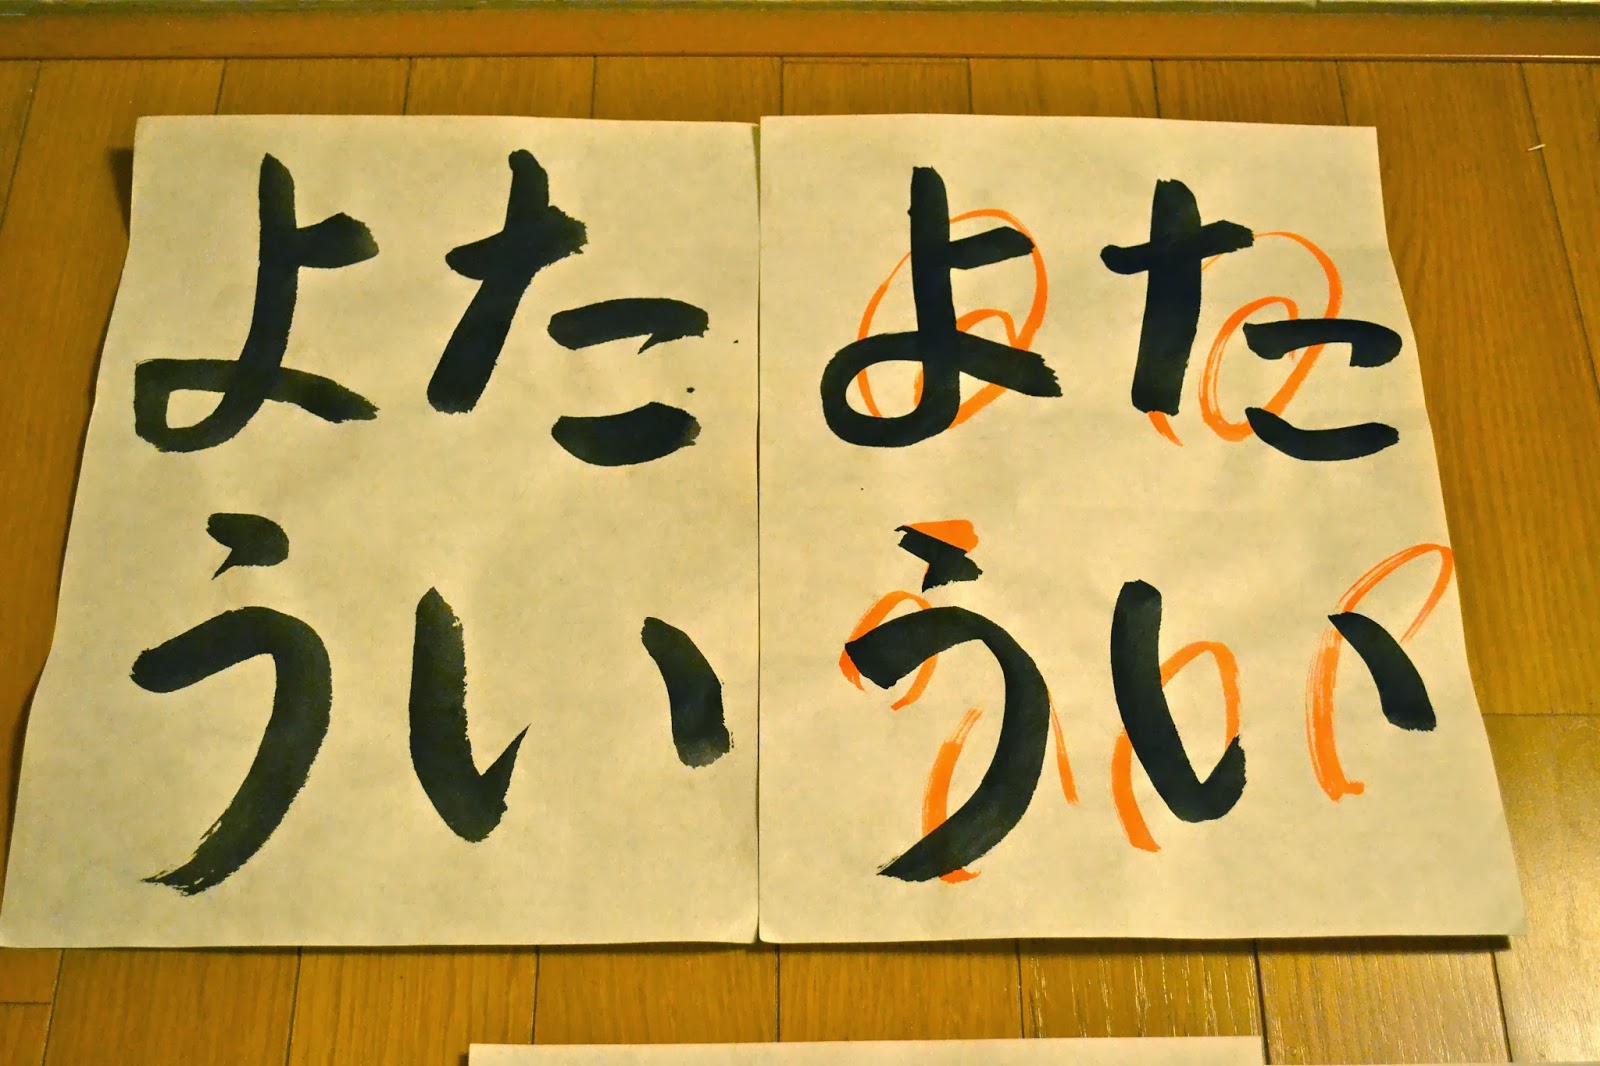 たい
よう
たい
よう